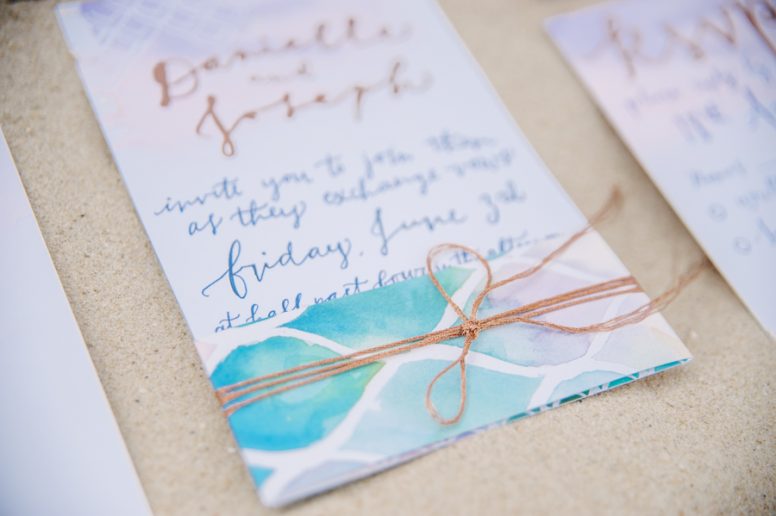 Danielle
and
Joseph
invite you to join them
as they exchange vows
friday, June 3rd
at half past four
RSVP